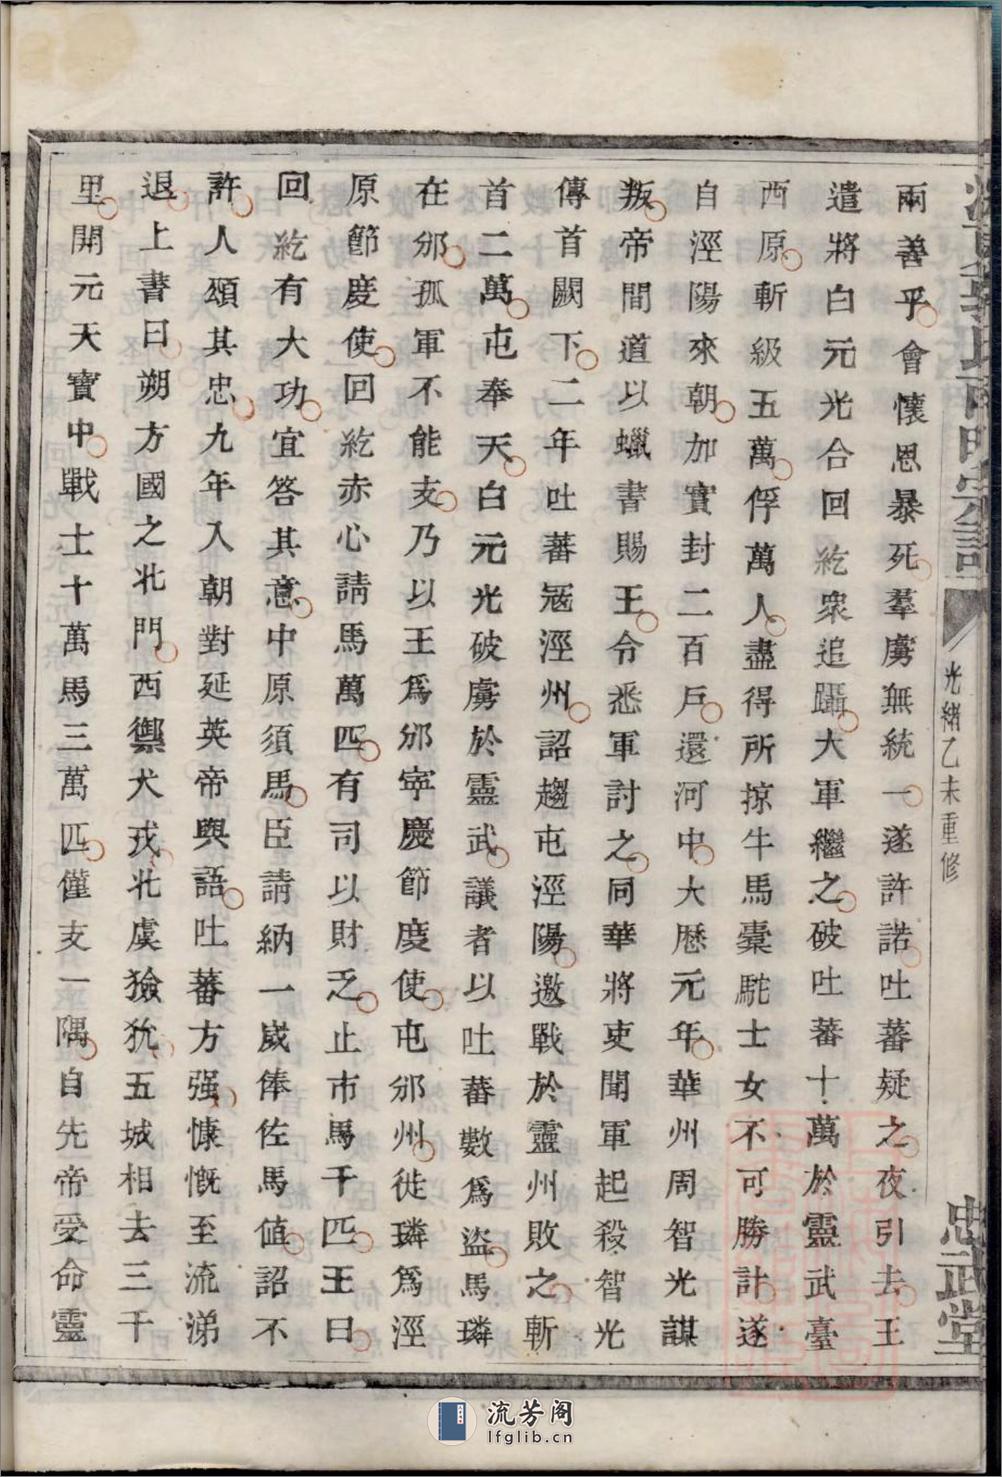 光緒乙未重修
忠武堂
兩善乎會懷恩暴死羣虜無統一遂許諾吐蕃疑之夜引去王
遣將白元光合回紇衆追躡大軍繼之破吐蕃十萬於靈武臺
西原斬級五萬俘萬人盡得所掠牛馬橐駝士女不可勝計遂
自涇陽來朝加實封二百戶還河中大歷元年華州周智光謀
叛帝間道以蠟書賜王令悉軍討之同華將吏聞軍起殺智光
傳首闕下二年吐蕃寇涇州詔趨屯涇陽邀戰於靈州敗之斬
首二萬屯奉天白元光破虜於靈武議者以吐蕃數爲盜馬璘
在邠孤軍不能支乃以王爲邠寧慶節度使屯邠州徙璘爲涇
原節度使回紇赤心請馬萬匹有司以財乏止市馬千匹王曰
回紇有大功宜答其意中原須馬臣請納一歲俸佐馬值詔不
許人頌其忠九年入朝對延英帝與語吐蕃方强慷慨至流涕
退上書曰朔方國之北門西禦犬戎北虞獫狁五城相去三千
里開元天寶中戰士十萬馬三萬匹僅支一隅自先帝受命靈
流芳阁
lfglib.cn